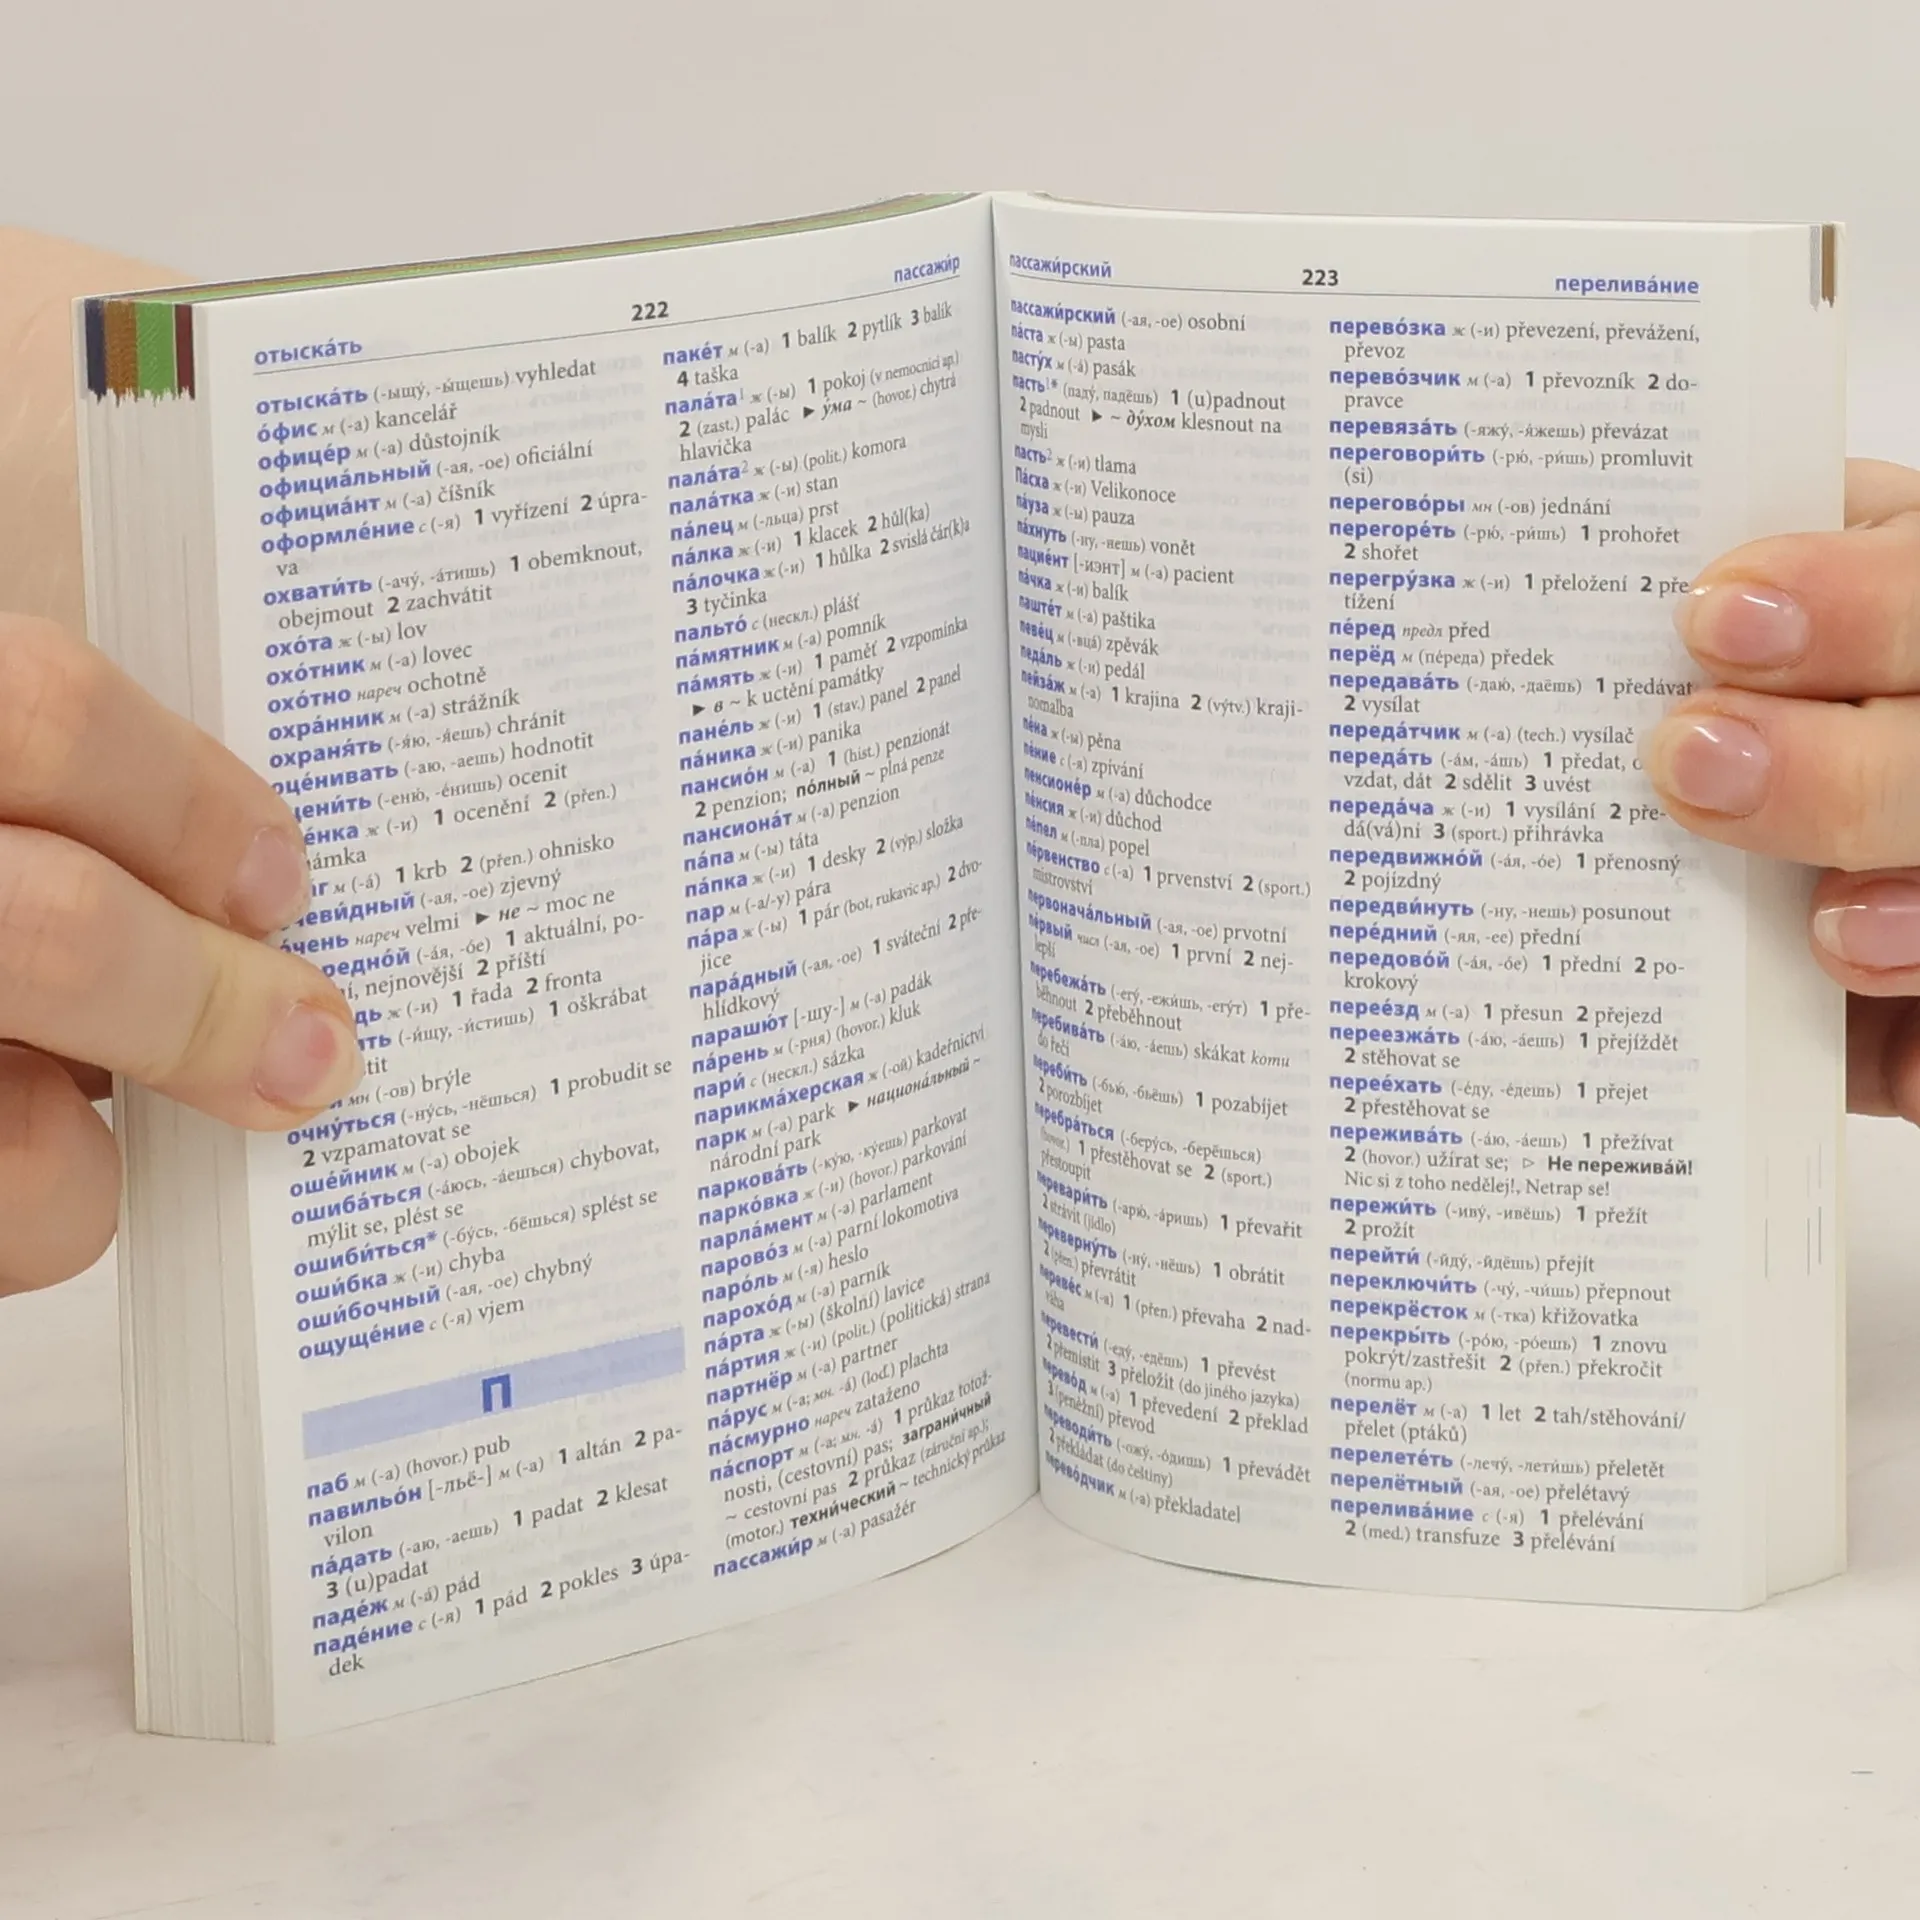 отыска́ть 222 пассажи́р
отыска́ть (-ыщу́, -ы́щешь) vyhledat
о́фис м (-а) kancelář
офице́р м (-а) důstojník
официа́льный (-ая, -ое) oficiální
официа́нт м (-а) číšník
оформле́ние с (-я) 1 vyřízení 2 úpra-
va
охвати́ть (-ачу́, -а́тишь) 1 obemknout,
obejmout 2 zachvátit
охо́та ж (-ы) lov
охо́тник м (-а) lovec
охо́тно нареч ochotně
охра́нник м (-а) strážník
охраня́ть (-я́ю, -я́ешь) chránit
оце́нивать (-аю, -аешь) hodnotit
цени́ть (-еню́, -е́нишь) ocenit
е́нка ж (-и) 1 ocenění 2 (přen.)
námka
г м (-а́) 1 krb 2 (přen.) ohnisko
чеви́дный (-ая, -ое) zjevný
о́чень нареч velmi ► не ~ moc ne
редно́й (-а́я, -о́е) 1 aktuální, po-
í, nejnovější 2 příští
дь ж (-и) 1 řada 2 fronta
ить (-и́щу, -и́стишь) 1 oškrábat
tit
мн (-ов) brýle
очну́ться (-ну́сь, -нёшься) 1 probudit se
2 vzpamatovat se
оше́йник м (-а) obojek
ошиба́ться (-а́юсь, -а́ешься) chybovat,
mýlit se, plést se
ошиби́ться* (-бу́сь, -бёшься) splést se
оши́бка ж (-и) chyba
оши́бочный (-ая, -ое) chybný
ощуще́ние с (-я) vjem
П
паб м (-а) (hovor.) pub
павильо́н [-льё-] м (-а) 1 altán 2 pa-
vilon
па́дать (-аю, -аешь) 1 padat 2 klesat
3 (u)padat
паде́ж м (-а́) pád
паде́ние с (-я) 1 pád 2 pokles 3 úpa-
dek
паке́т м (-а) 1 balík 2 pytlík 3 balík
4 taška
пала́та¹ ж (-ы) 1 pokoj (v nemocnici ap.)
2 (zast.) palác ► ума́ ~ (hovor.) chytrá
hlavička
пала́та² ж (-ы) (polit.) komora
пала́тка ж (-и) stan
па́лец м (-льца) prst
па́лка ж (-и) 1 klacek 2 hůl(ka)
па́лочка ж (-и) 1 hůlka 2 svislá čár(k)a
3 tyčinka
пальто́ с (нескл.) plášť
па́мятник м (-а) pomník
па́мять ж (-и) 1 paměť 2 vzpomínka
► в ~ k uctění památky
пане́ль ж (-и) 1 (stav.) panel 2 panel
па́ника ж (-и) panika
пансио́н м (-а) 1 (hist.) penzionát
2 penzion; по́лный ~ plná penze
пансиона́т м (-а) penzion
па́па м (-ы) táta
па́пка ж (-и) 1 desky 2 (výp.) složka
пар м (-а/-у) pára
па́ра ж (-ы) 1 pár (bot, rukavic ap.) 2 dvo-
jice
пара́дный (-ая, -ое) 1 sváteční 2 pře-
hlídkový
парашю́т [-шу-] м (-а) padák
па́рень м (-рня) (hovor.) kluk
пари́ с (нескл.) sázka
парикма́херская ж (-ой) kadeřnictví
парк м (-а) park ► национа́льный ~
národní park
паркова́ть (-ку́ю, -ку́ешь) parkovat
парко́вка ж (-и) (hovor.) parkování
парла́мент м (-а) parlament
парово́з м (-а) parní lokomotiva
паро́ль м (-я) heslo
парохо́д м (-а) parník
па́рта ж (-ы) (školní) lavice
па́ртия ж (-и) (polit.) (politická) strana
партнёр м (-а) partner
па́рус м (-а; мн. -а́) (lod.) plachta
па́смурно нареч zataženo
па́спорт м (-а; мн. -а́) 1 průkaz totož-
nosti, (cestovní) pas; заграни́чный
~ cestovní pas 2 průkaz (záruční ap.);
(motor.) техни́ческий ~ technický průkaz
пассажи́р м (-а) pasažér
пассажи́рский 223 перелива́ние
пассажи́рский (-ая, -ое) osobní
па́ста ж (-ы) pasta
пасту́х м (-а́) pasák
пасть¹* (паду́, падёшь) 1 (u)padnout
2 padnout ► ~ ду́хом klesnout na
mysli
пасть² ж (-и) tlama
Па́сха ж (-и) Velikonoce
па́уза ж (-ы) pauza
па́хнуть (-ну, -нешь) vonět
пацие́нт [-иэнт] м (-а) pacient
па́чка ж (-и) balík
паште́т м (-а) paštika
певе́ц м (-вца́) zpěvák
педа́ль ж (-и) pedál
пейза́ж м (-а) 1 krajina 2 (výtv.) kraji-
nomalba
пе́на ж (-ы) pěna
пе́ние с (-я) zpívání
пенсионе́р м (-а) důchodce
пе́нсия ж (-и) důchod
пе́пел м (-пла) popel
пе́рвенство с (-а) 1 prvenství 2 (sport.)
mistrovství
первонача́льный (-ая, -ое) prvotní
пе́рвый числ (-ая, -ое) 1 první 2 nej-
lepší
перебежа́ть (-егу́, -ежи́шь, -егу́т) 1 pře-
běhnout 2 přeběhnout
перебива́ть (-а́ю, -а́ешь) skákat komu
do řeči
переби́ть (-бью́, -бьёшь) 1 pozabíjet
2 porozbíjet
перебра́ться (-беру́сь, -берёшься)
(hovor.) 1 přestěhovat se 2 (sport.)
přestoupit
перевари́ть (-арю́, -а́ришь) 1 převařit
2 strávit (jídlo)
переверну́ть (-ну́, -нёшь) 1 obrátit
2 (přen.) převrátit
переве́с м (-а) 1 (přen.) převaha 2 nad-
váha
перевести́ (-еду́, -едёшь) 1 převést
2 přemístit 3 přeložit (do jiného jazyka)
перево́д м (-а) 1 převedení 2 překlad
3 (peněžní) převod
переводи́ть (-ожу́, -о́дишь) 1 převádět
2 překládat (do češtiny)
перево́дчик м (-а) překladatel
перево́зка ж (-и) převezení, převážení,
převoz
перево́зчик м (-а) 1 převozník 2 do-
pravce
перевяза́ть (-яжу́, -я́жешь) převázat
переговори́ть (-рю́, -ри́шь) promluvit
(si)
перегово́ры мн (-ов) jednání
перегоре́ть (-рю́, -ри́шь) 1 prohořet
2 shořet
перегру́зка ж (-и) 1 přeložení 2 pře
tížení
пе́ред предл před
перёд м (пе́реда) předek
передава́ть (-даю́, -даёшь) 1 předávat
2 vysílat
переда́тчик м (-а) (tech.) vysílač
переда́ть (-а́м, -а́шь) 1 předat, o
vzdat, dát 2 sdělit 3 uvést
переда́ча ж (-и) 1 vysílání 2 pře-
dá(vá)ní 3 (sport.) přihrávka
передвижно́й (-а́я, -о́е) 1 přenosný
2 pojízdný
передви́нуть (-ну, -нешь) posunout
пере́дний (-яя, -ее) přední
передово́й (-а́я, -о́е) 1 přední 2 po-
krokový
перее́зд м (-а) 1 přesun 2 přejezd
переезжа́ть (-а́ю, -а́ешь) 1 přejíždět
2 stěhovat se
перее́хать (-е́ду, -е́дешь) 1 přejet
2 přestěhovat se
пережива́ть (-а́ю, -а́ешь) 1 přežívat
2 (hovor.) užírat se; ▷ Не пережива́й!
Nic si z toho nedělej!, Netrap se!
пережи́ть (-иву́, -ивёшь) 1 přežít
2 prožít
перейти́ (-йду́, -йдёшь) přejít
переключи́ть (-чу́, -чи́шь) přepnout
перекрёсток м (-тка) křižovatka
перекры́ть (-ро́ю, -ро́ешь) 1 znovu
pokrýt/zastřešit 2 (přen.) překročit
(normu ap.)
перелёт м (-а) 1 let 2 tah/stěhování/
přelet (ptáků)
перелете́ть (-лечу́, -лети́шь) přeletět
перелётный (-ая, -ое) přelétavý
перелива́ние с (-я) 1 přelévání
2 (med.) transfuze 3 přelévání